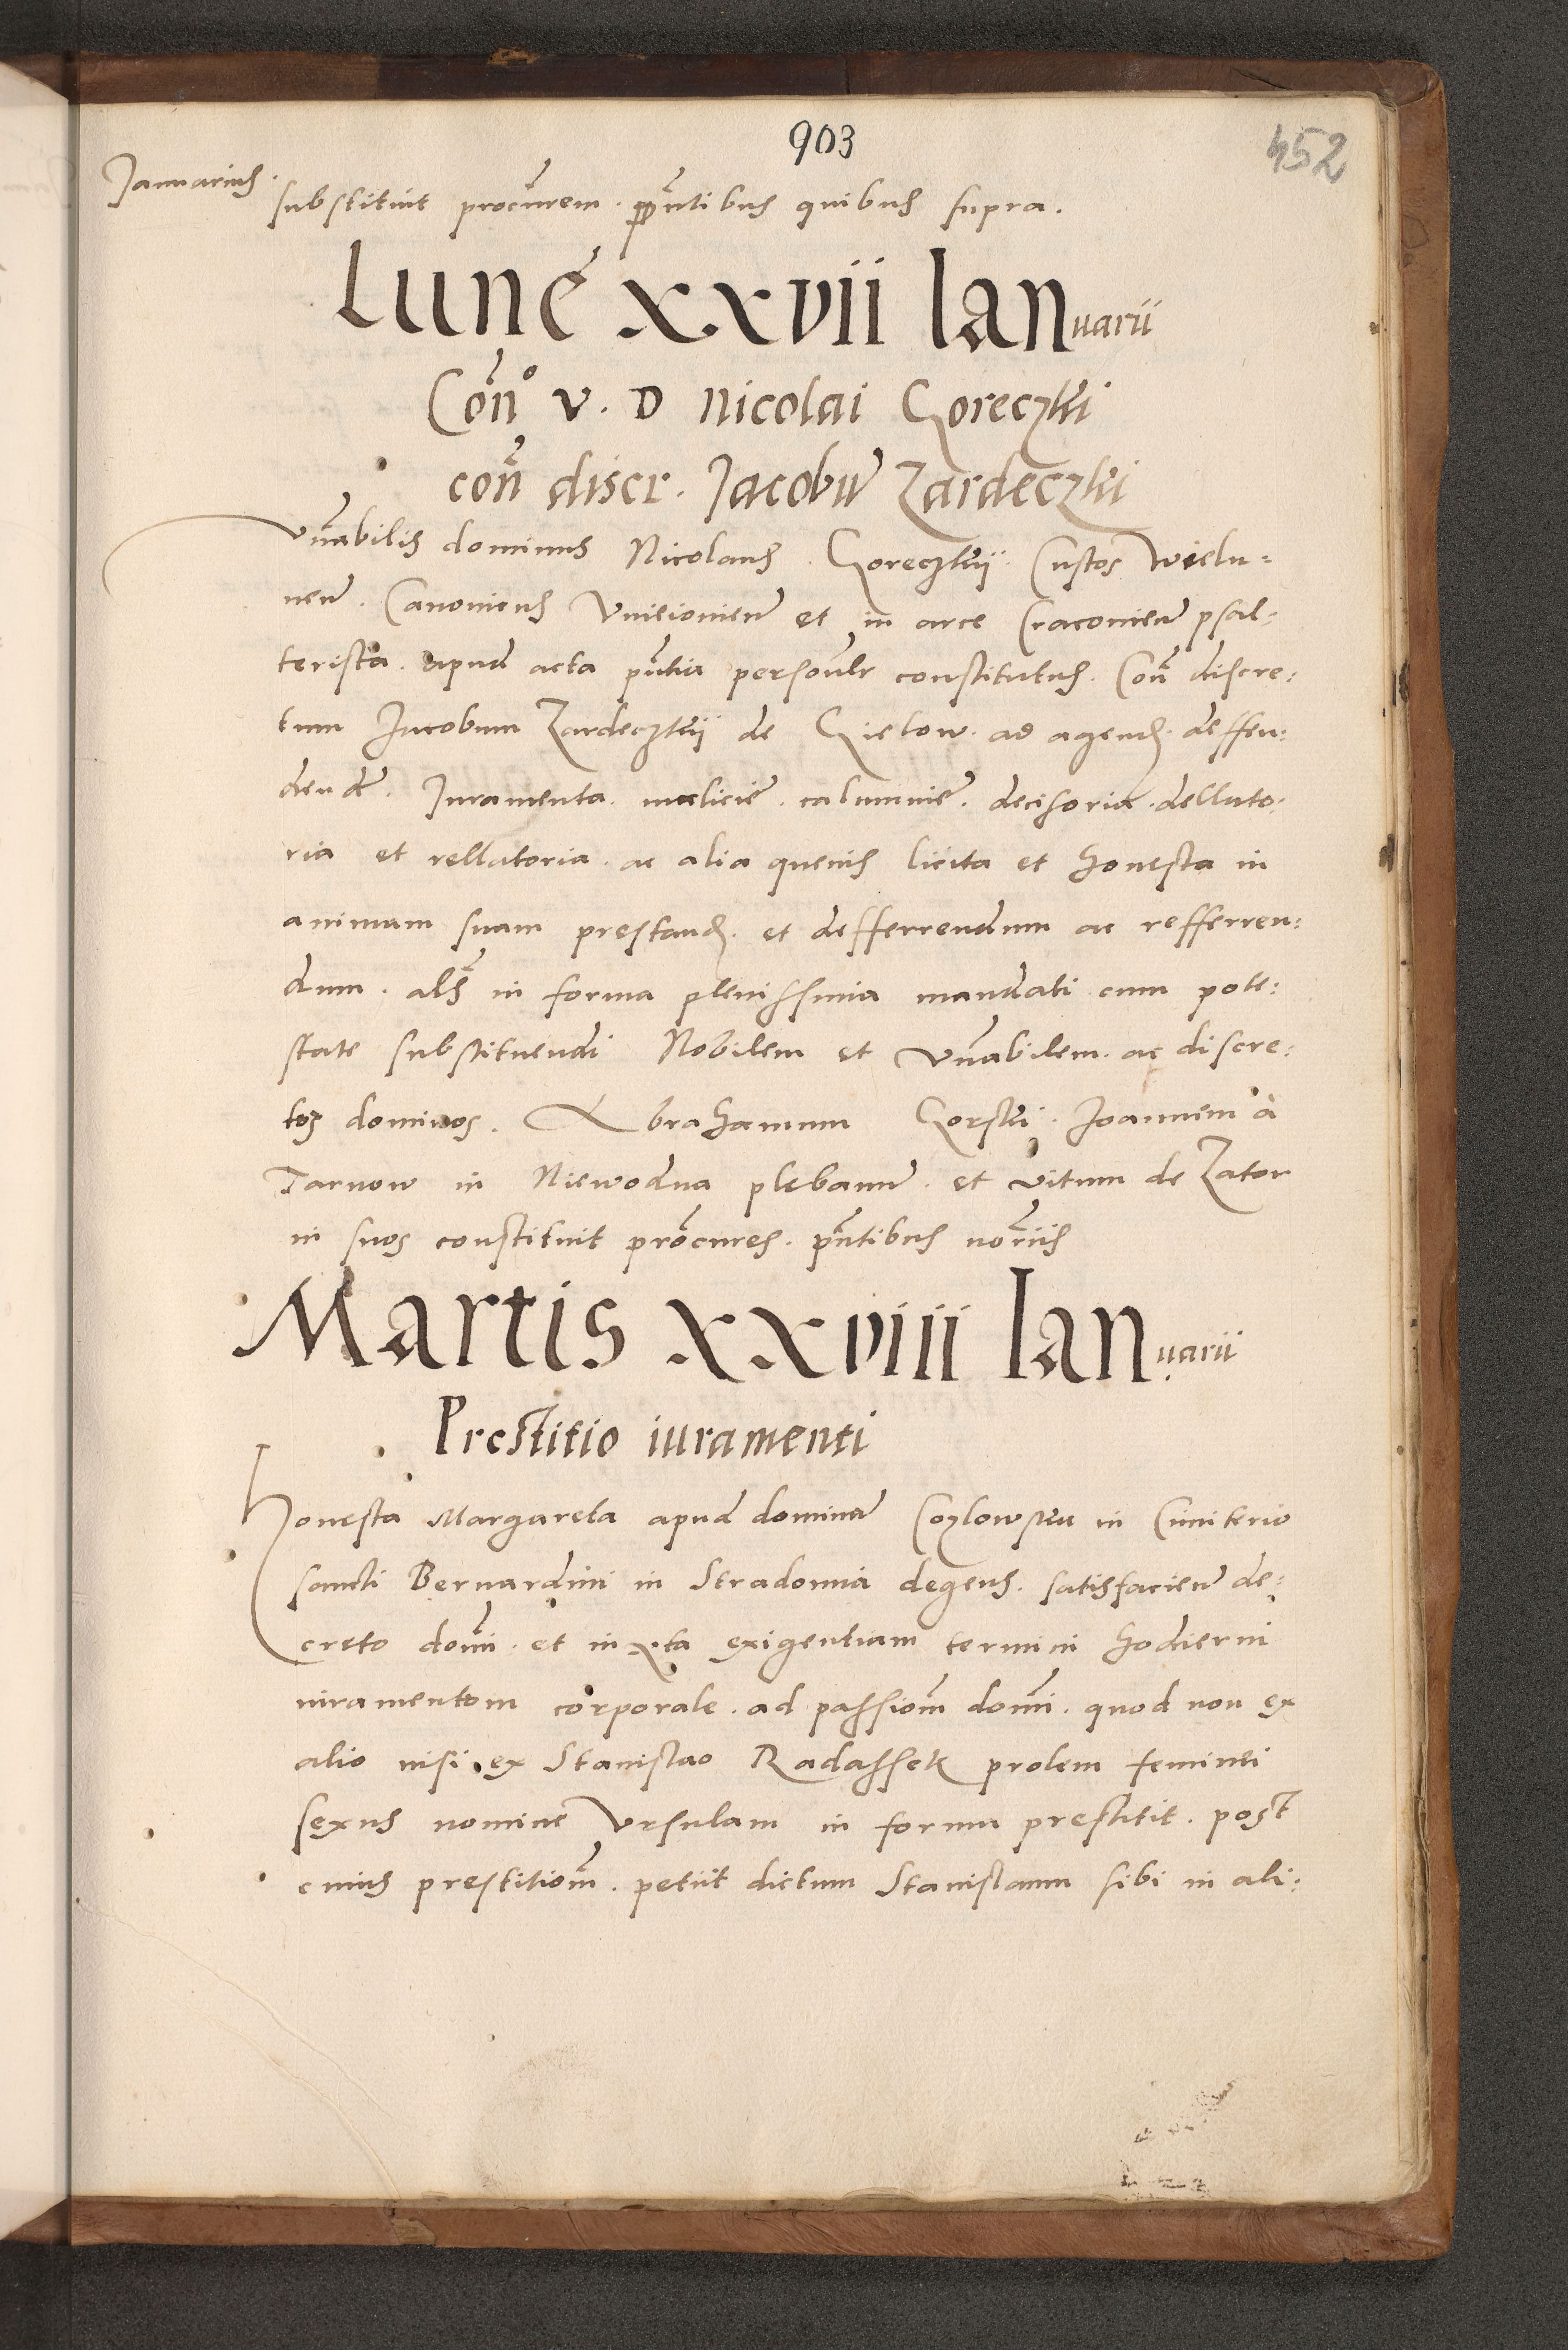 903
452
Januarius
substituit procurem. pputibus quibus supra.
Lune xxvii Ianuarii
Con° V. D Nicolai Goreczki
con discr. Jacobum Zardeczki
Vnabilis dominus Nicolaus Goreczkij Custos Wielu-
nen. Canonicus Vnieiovien et in arce Cracovien psal-
terista. apud acta pntia personalr constitutus. Con discre-
tum Jacobum Zardeczkij de Gielow. ad agend. deffen-
dend. Juramenta. malicie. calumnie. decisoria. dellato-
ria et rellatoria. ac alia quevis licita et honesta in
animam suam prestand. et defferrendum ac refferren-
dum. als in forma plenissima mandati cum pote-
state substituendi Nobilem et Vnabilem. ac discre-
tos dominos. Abrahamum Gorski. Joannem à
Tarnow in Niewodna plebanum. et Vitum de Zator
in suos constituit procures. pntibus noriis
Martis xxviii Ianuarii
Prestitio iuramenti
Honesta Margareta apud dominam Cozlowska in Cimiterio
sancti Bernardini in Stradomia degens. satisfacien de-
creto domi. et iuxta exigentiam termini hodierni
iuramentum corporale. ad passionem domi. quod non ex
alio nisi ex Stanislao Radassek prolem feminei
sexus nomine Vrsulam in forma prestitit. post
cuius prestitionem. petiit dictum Stanislaum sibi in ali-